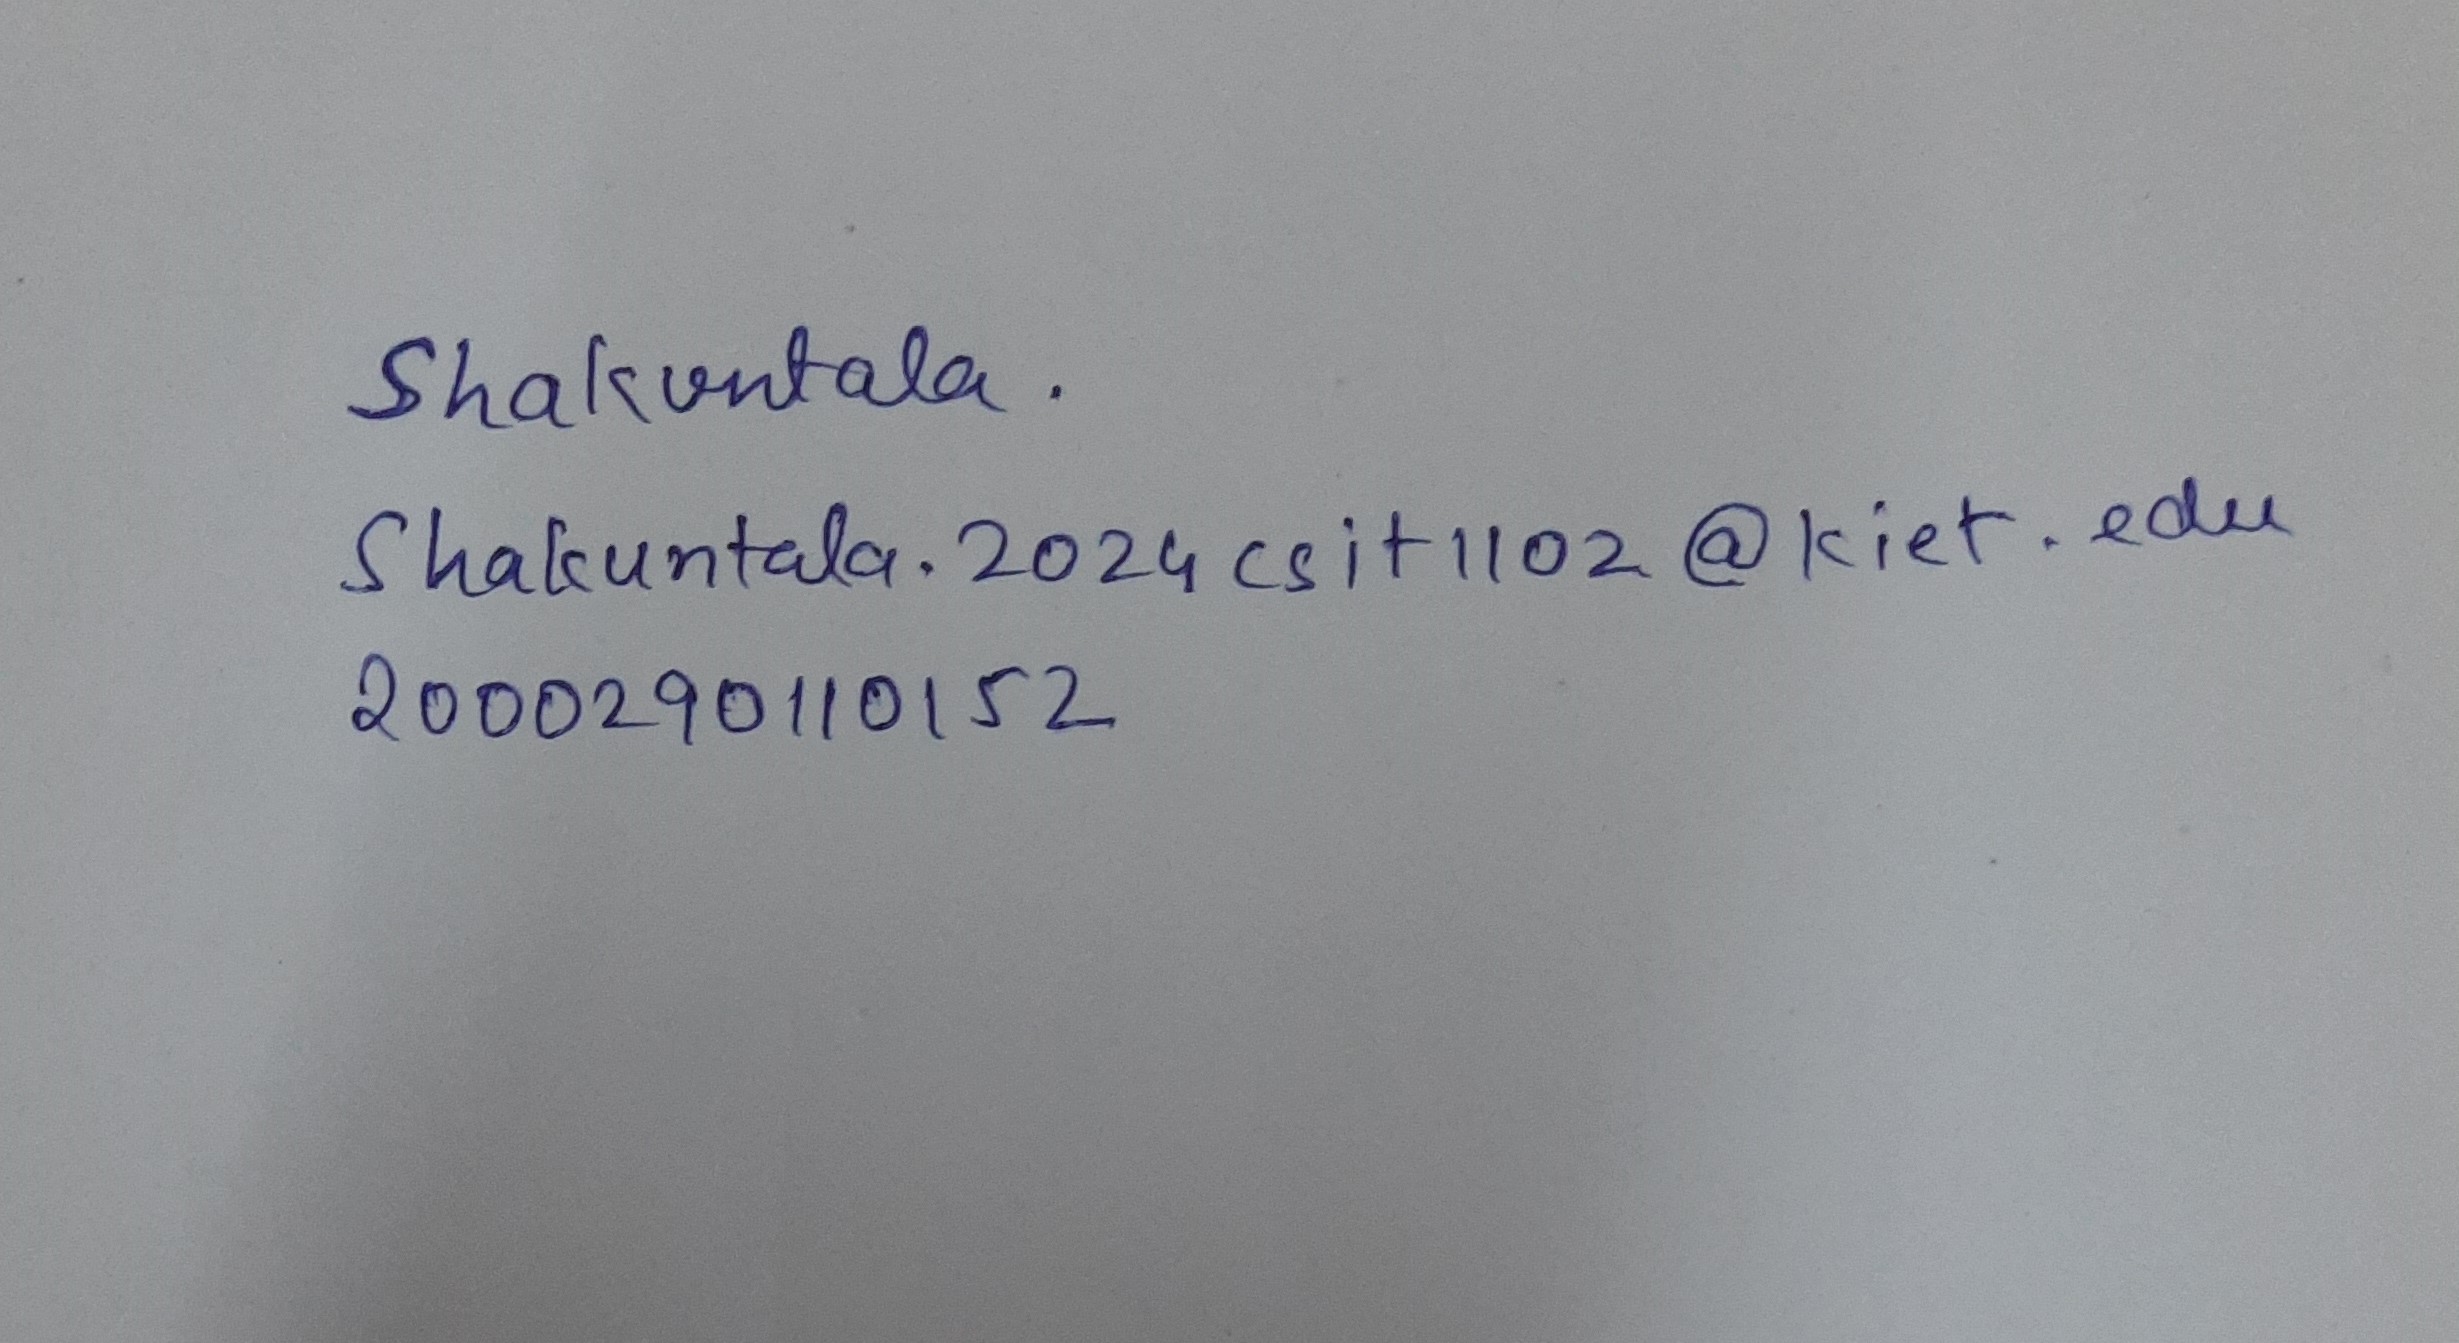 Shakuntala.
Shakuntala.2024csit1102@kiet.edu
2000290110152